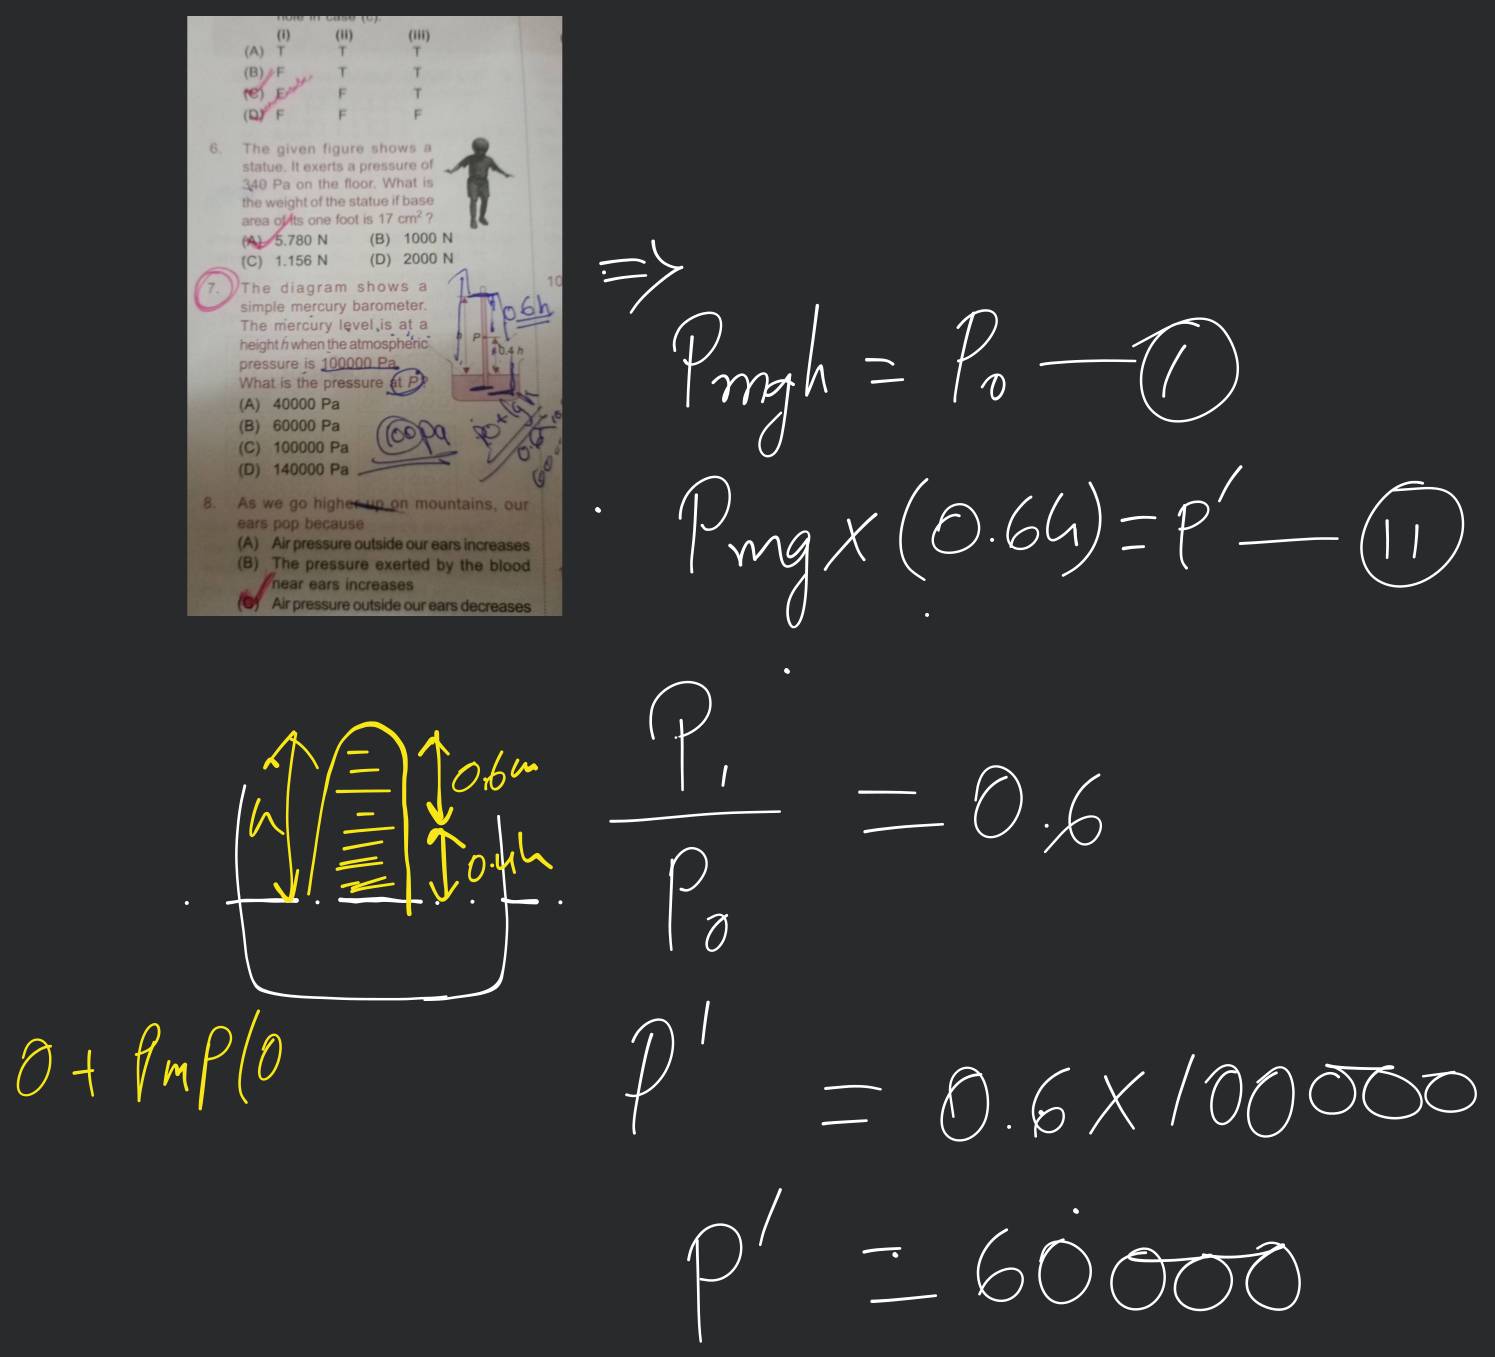 hole in case (c).
(i) (ii) (iii)
(A) T T T
(B) F T T
(C) F F T
(D) F F F
6. The given figure shows a
statue. It exerts a pressure of
340 Pa on the floor. What is
the weight of the statue if base
area of its one foot is 17 cm² ?
(A) 5.780 N (B) 1000 N
(C) 1.156 N (D) 2000 N
7. The diagram shows a
simple mercury barometer.
The mercury level is at a
height h when the atmospheric
pressure is 100000 Pa.
What is the pressure at P?
(A) 40000 Pa
(B) 60000 Pa
(C) 100000 Pa
(D) 140000 Pa
P
0.4 h
0.6h
100pa
10
8. As we go higher up on mountains, our
ears pop because
(A) Air pressure outside our ears increases
(B) The pressure exerted by the blood
near ears increases
(C) Air pressure outside our ears decreases
⇒
Pmgh = P₀ — I
Pmg x (0.6h) = P' — II
P₁ / P₀ = 0.6
P' = 0.6 x 100000
P' = 60000
h
0.6m
0.4h
0 + PmP(0